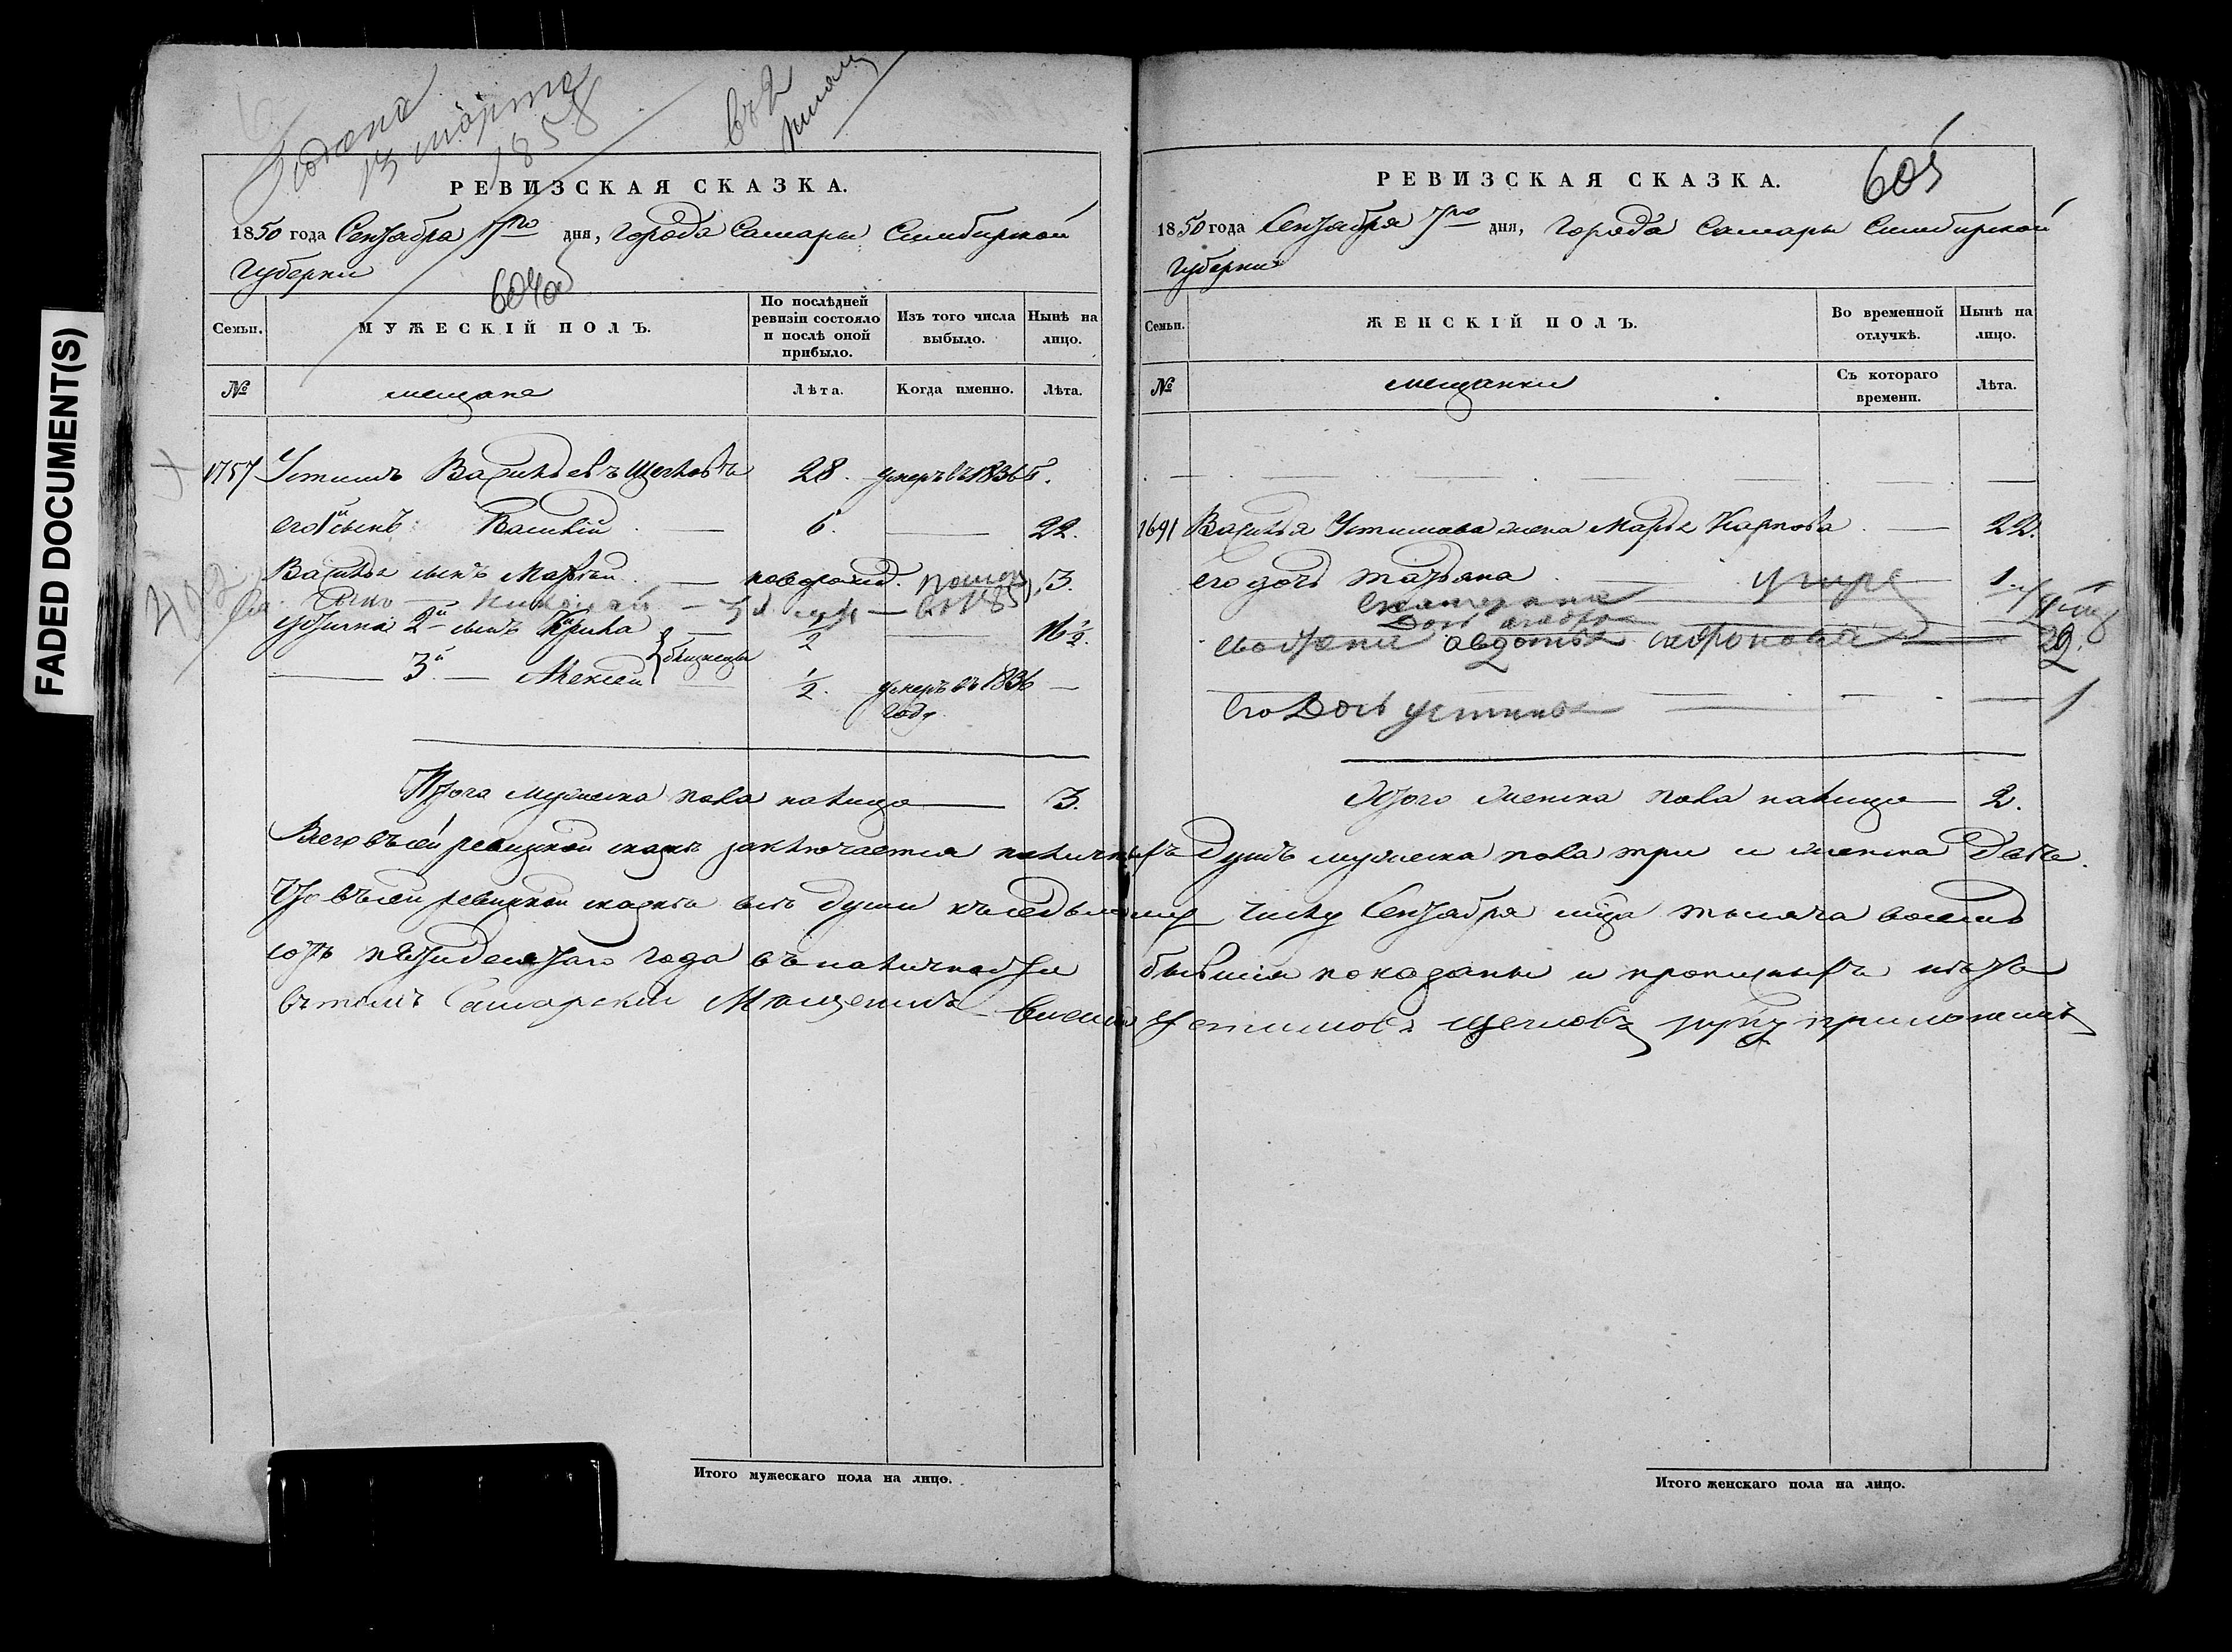 FADED DOCUMENT(S)
Подана
13 марта
1858
РЕВИЗСКАЯ СКАЗКА.
1850 года Сентября 7го дня, города Самары Симбирской
губерніи
604об
Семьи. МУЖЕСКІЙ ПОЛЪ. По послѣдней ревизіи состояло и послѣ оной прибыло. Изъ того числа выбыло. Нынѣ на лицо.
№ мещане Лѣта. Когда именно. Лѣта.
1757 Устимъ Васильевъ Щегловъ 28. умеръ въ 1836 г.
его 1й сынъ Василій 6. 22.
Василья сынъ Матвей новорожд. 3.
Устима 2й сынъ Кирила 1/2 16 1/2.
3й Алексей близнецы 1/2. умеръ въ 1836
году
Итого мужеска пола налицо 3.
605
РЕВИЗСКАЯ СКАЗКА.
1850 года Сентября 7го дня, города Самары Симбирской
губерніи
Семьи. ЖЕНСКІЙ ПОЛЪ. Во временной отлучкѣ. Нынѣ на лицо.
№ мещанки Съ котораго времени. Лѣта.
1691 Василья Устимова жена Марья Карпова 22.
его дочь Татьяна умре 1
Екатерина
его дочь устинья 1
Итого женска пола налицо 2.
Всего въ сей ревизкой сказке заключается наличныхъ душъ мужеска пола три и женска две.
Что въ сей ревизкой сказке все души къ седьмому числу Сентября мца тысяча восемь
сотъ пятидесятаго года въ наличности бывшіи показаны и прописныхъ нетъ
въ томъ Самарский Мещенинъ Василей Устимовъ щегловъ руку приложилъ
Итого мужескаго пола на лицо.
Итого женскаго пола на лицо.